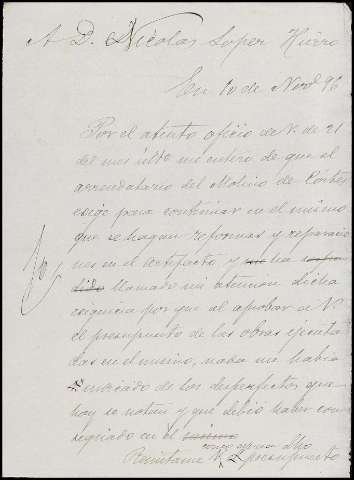 A D. Nicolas Soper Hierro
En 10 de Novb. 96
Por el atento oficio de V. de 21
del mes últo me entero de que el
arrendatario del Molino de Cortes
exige para continuar en el mismo
que se hagan reformas y reparacio
nes en el artefacto y ha
dido llamado mi atencion dicha
exigencia por que al aprobar a V.
el presupuesto de las obras ejecuta
das en el mismo, nada me habia
indicado de los desperfectos que
hoy se notan y que debió haber con
signado en el mismo
como expresa dho
Remitame V. presupuesto